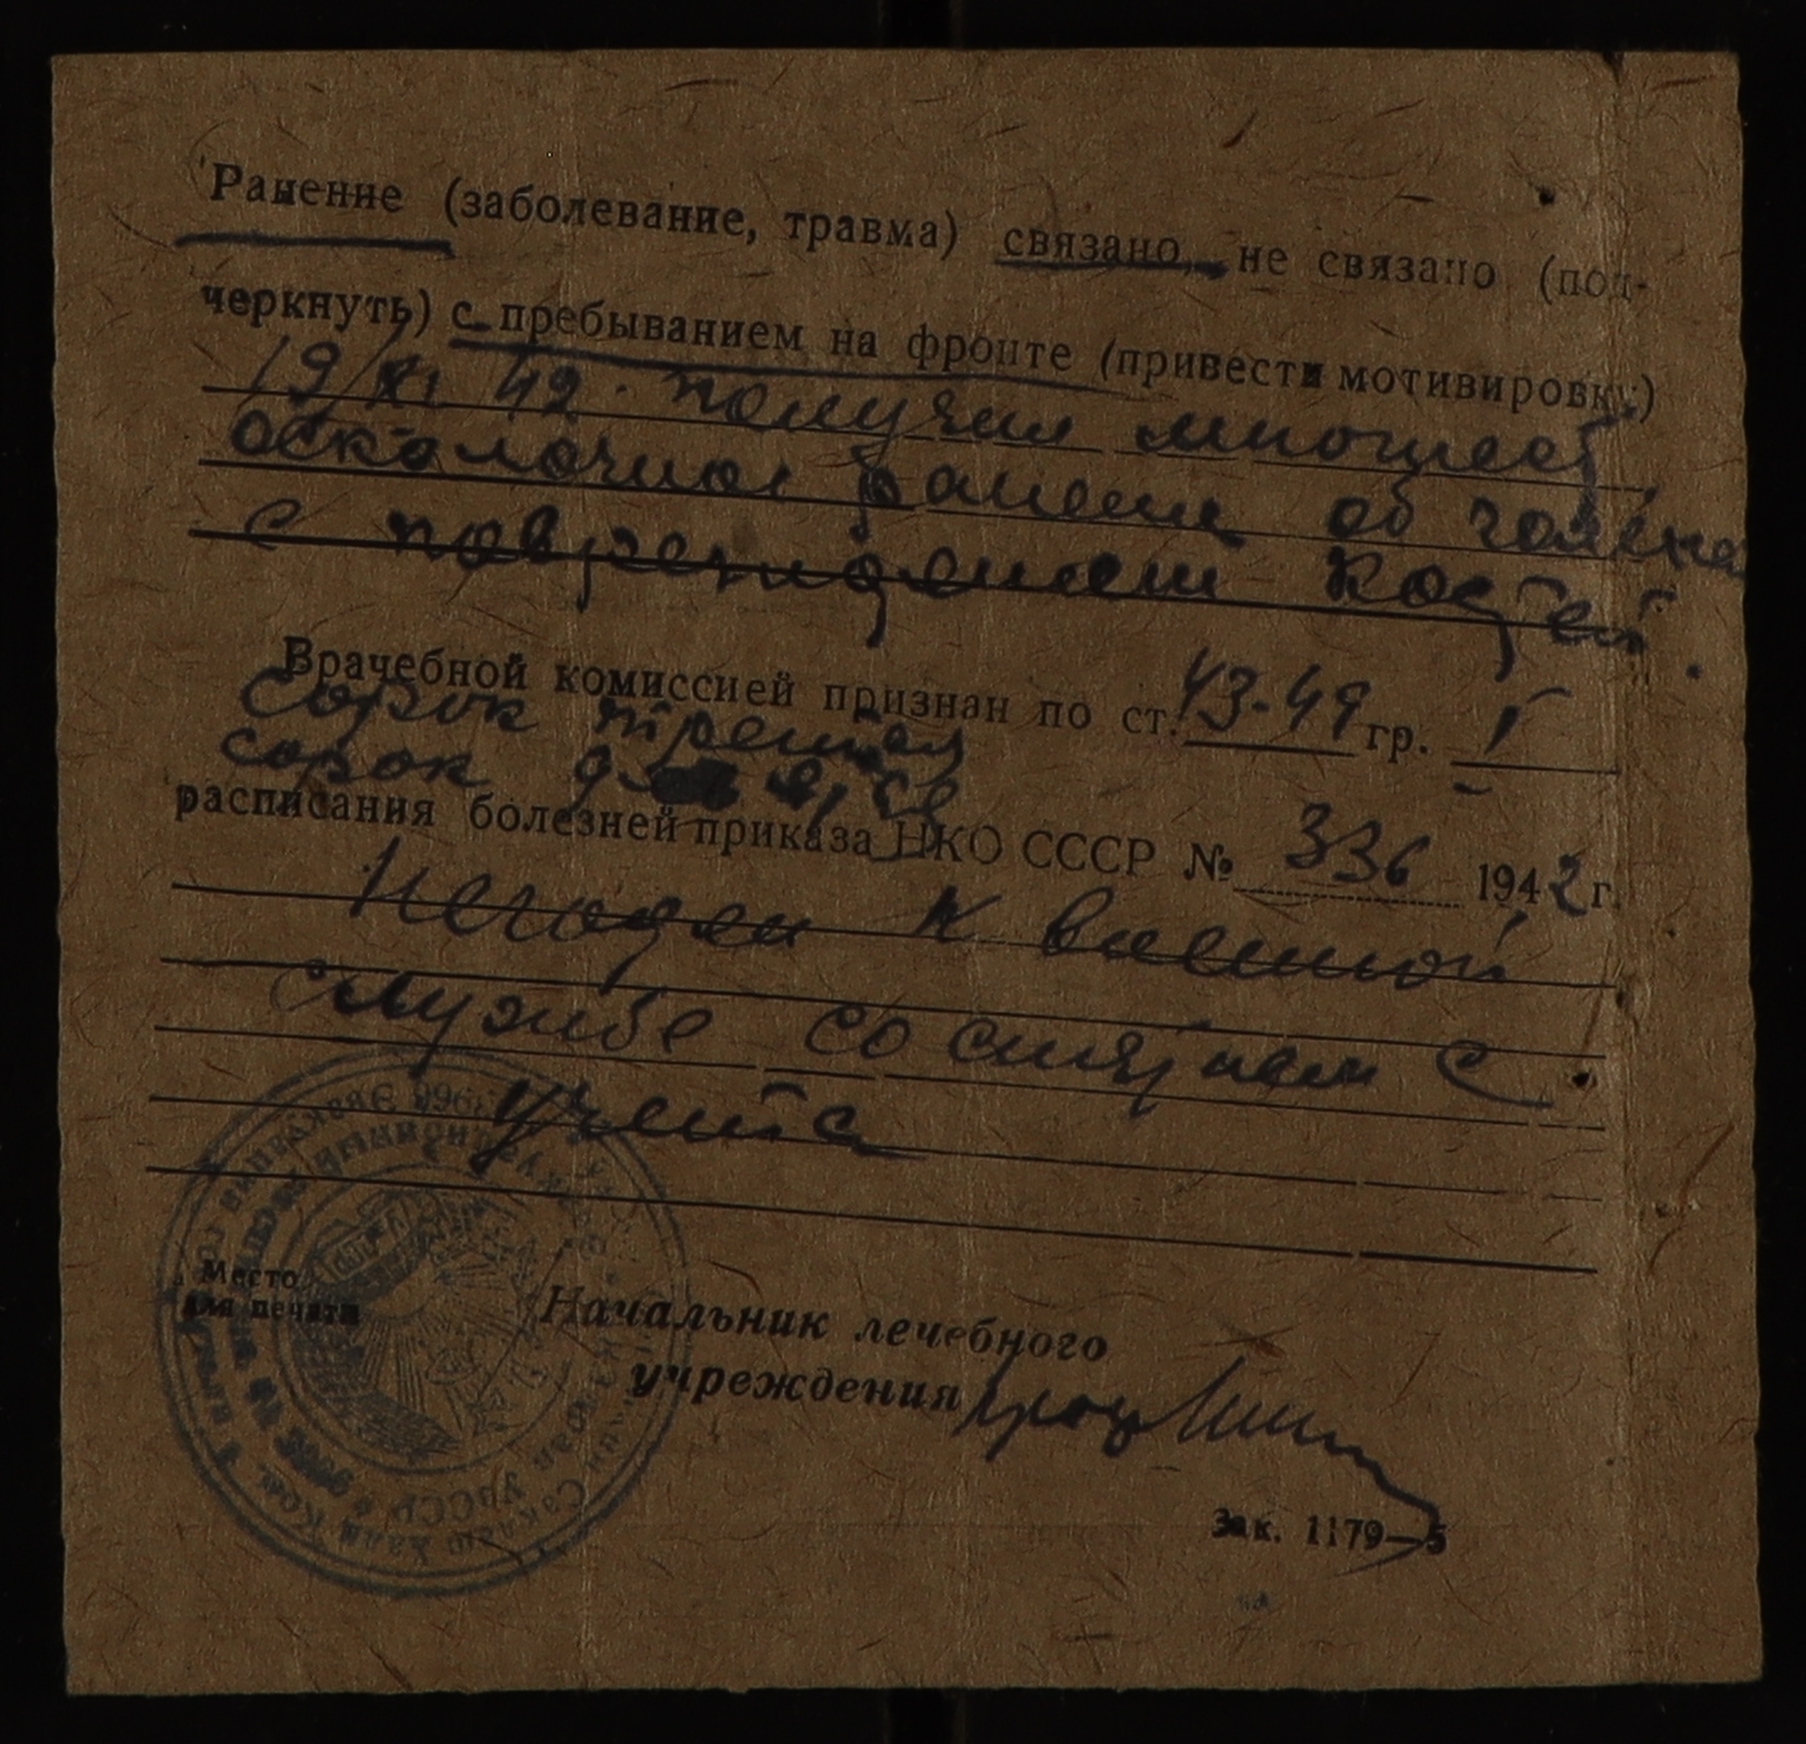 Ранение (заболевание, травма) связано, не связано (под-
черкнуть) с пребыванием на фронте (привести мотивировку)
19/XI 42. получил множест
осколочное ранение об голен
с повреждением костей.
Врачебной комиссией признан по ст. 43-49 гр. I
сорок третья
сорок
расписания болезней приказа НКО СССР № 336 1942 г.
Негоден к военной
службе со снятием с
учета
Место
для печати
Начальник лечебного
учреждения
Зак. 1179—5